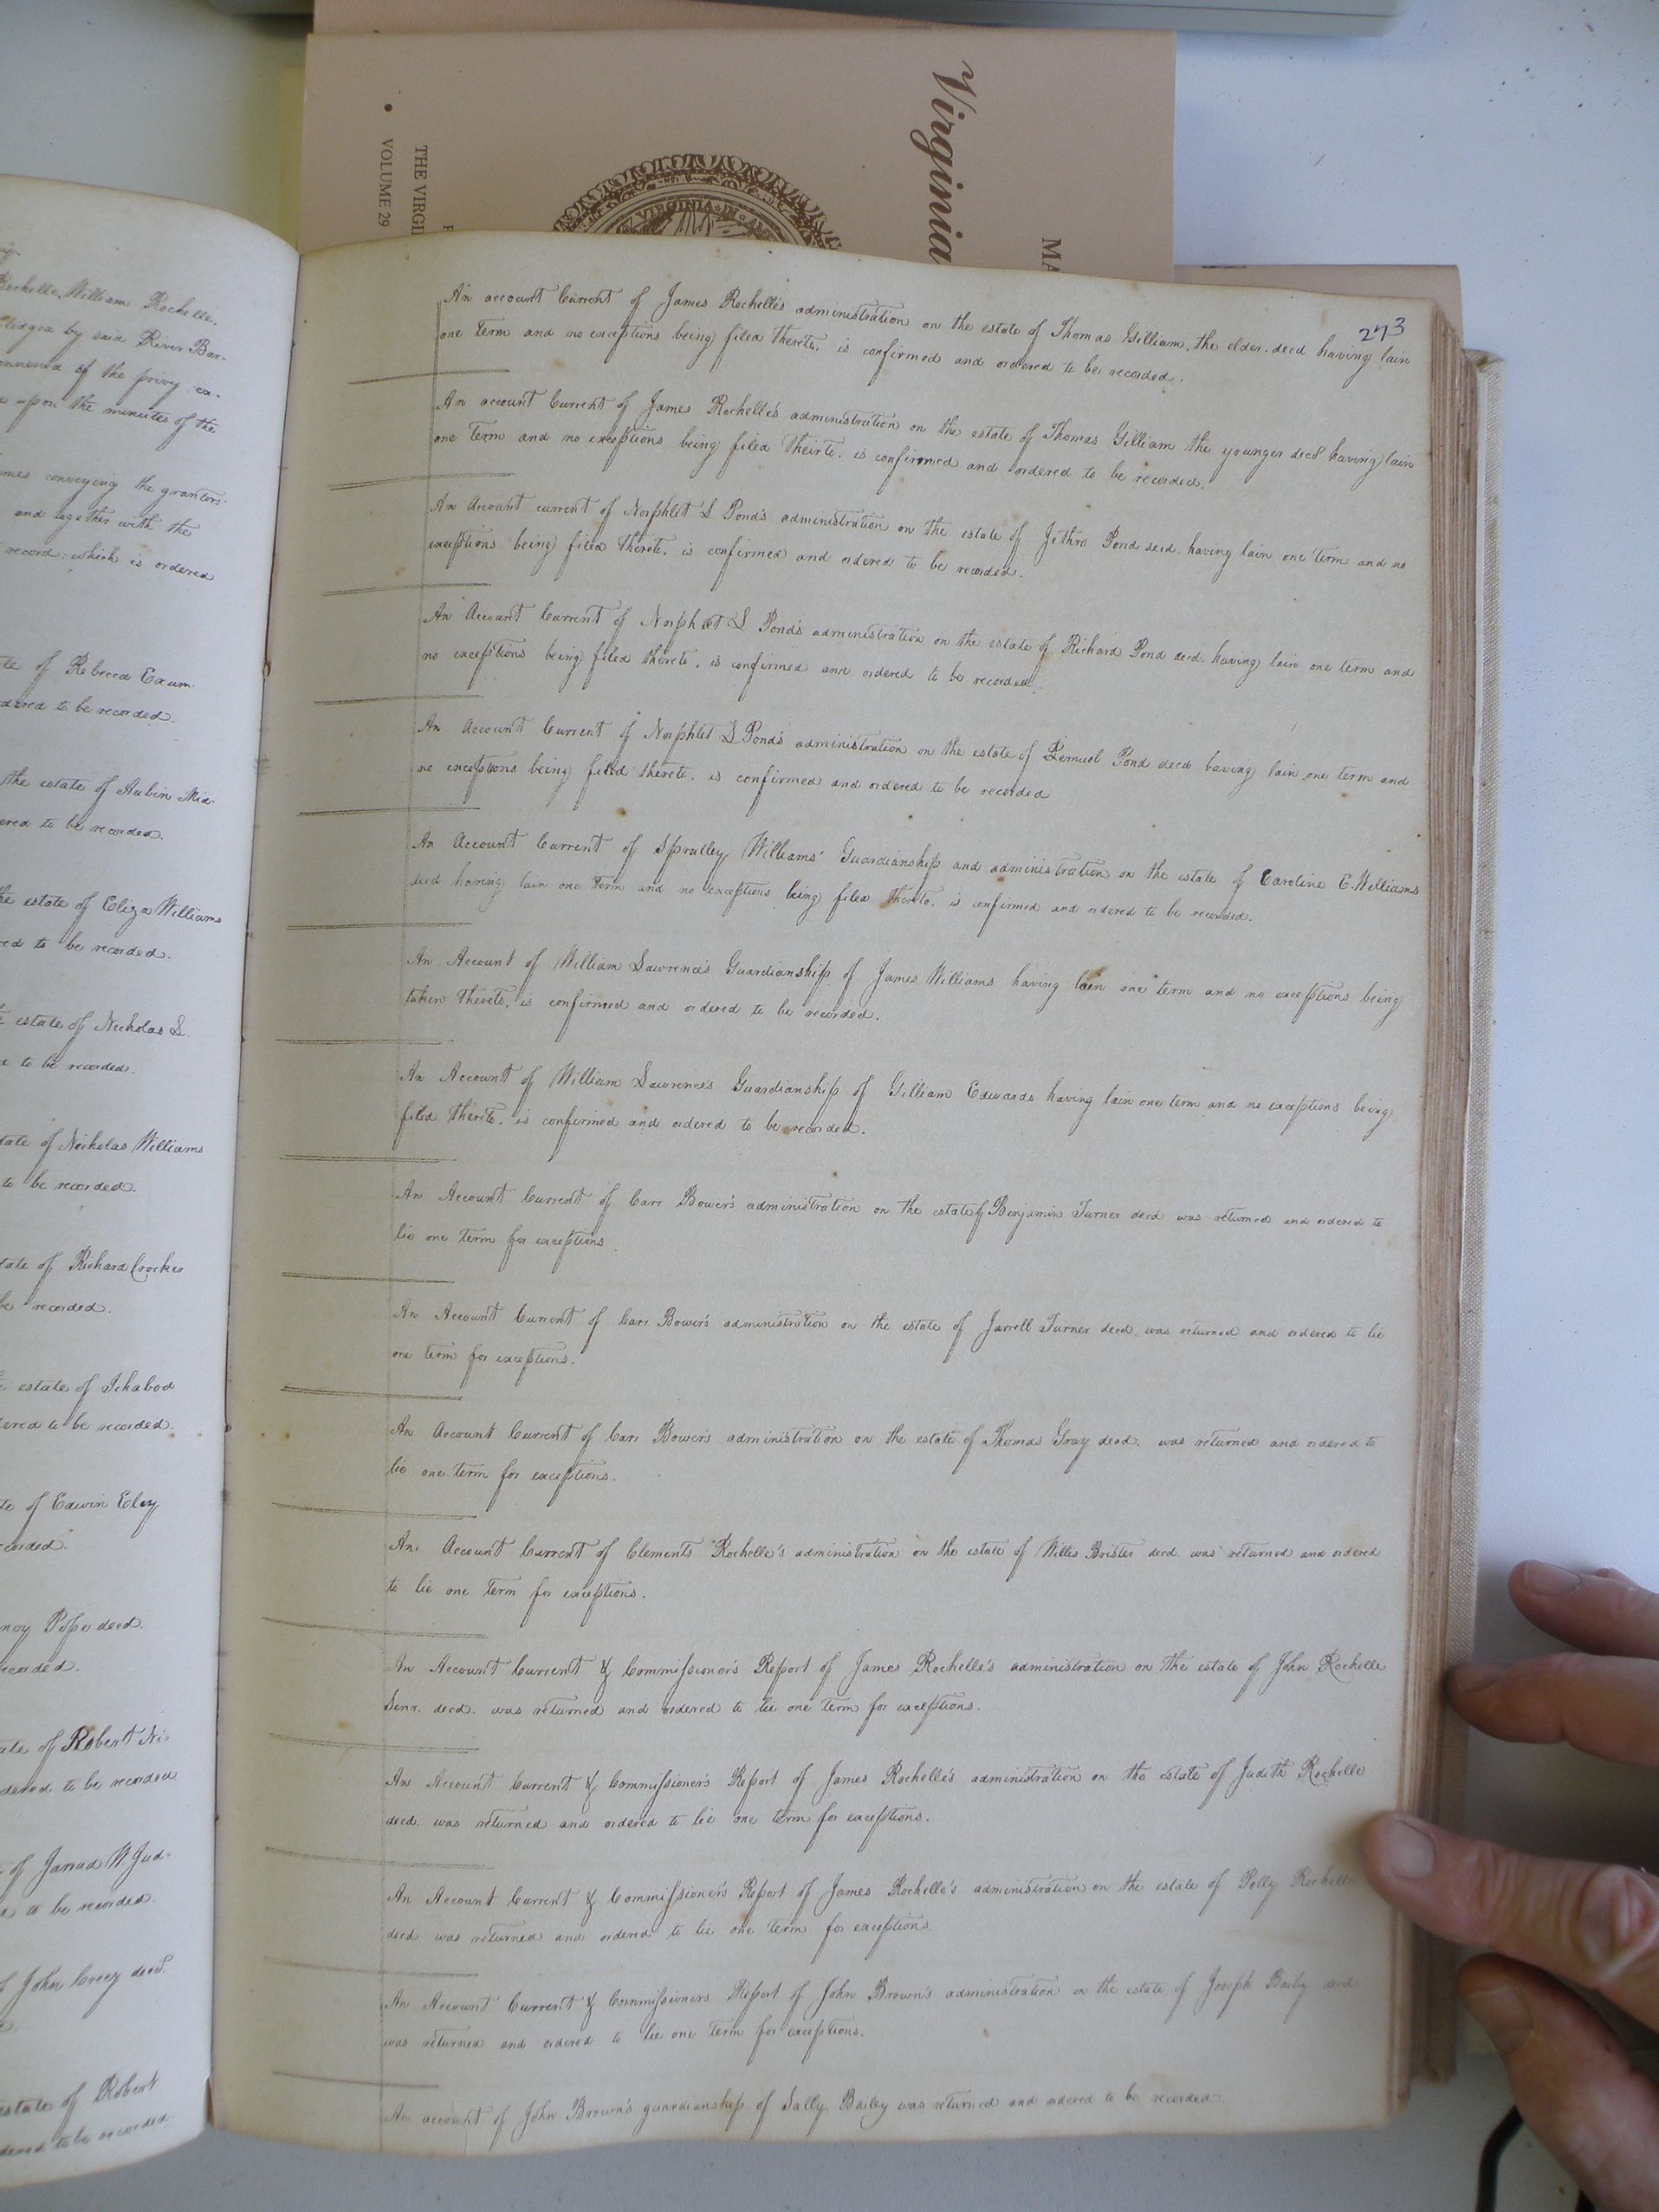 Virginia
MA
THE VIRGI
VOLUME 29
VIRGINIA IN A
Rochelle, William Rochelle,
ledged by said River Bar-
of the privy ex-
upon the minutes of the
mes conveying the grantors
and together with the
record: which is ordered
te of Rebecca Exum
dered to be recorded.
the estate of Aubin Mid-
ered to be recorded.
the estate of Eliza Williams
red to be recorded.
estate of Nicholas L.
d to be recorded.
tate of Nicholas Williams
to be recorded.
tate of Richard Crocker
be recorded.
estate of Ichabod
ered to be recorded.
te of Edwin Eley
corded.
ncy Pope decd.
recorded.
ate of Robert Ni-
dered to be recorded
of Jarrad W Jud-
d to be recorded.
of John Crecy decd.
estate of Robert
dered to be recorded.
273
An account Current of James Rochelle's administration on the estate of Thomas Gilliam, the elder, decd having lain
one term and no exceptions being filed thereto, is confirmed and ordered to be recorded.
An account Current of James Rochelle's administration on the estate of Thomas Gilliam the younger decd having lain
one term and no exceptions being filed thereto, is confirmed and ordered to be recorded.
An Account current of Norphlet L Pond's administration on the estate of Jethro Pond decd. having lain one term and no
exceptions being filed thereto, is confirmed and ordered to be recorded.
An Account Current of Norphlet L Pond's administration on the estate of Richard Pond decd. having lain one term and
no exceptions being filed thereto, is confirmed and ordered to be recorded.
An Account Current of Norphlet L Pond's administration on the estate of Lemuel Pond decd having lain one term and
no exceptions being filed thereto, is confirmed and ordered to be recorded
An Account Current of Spratley Williams' Guardianship and administration on the estate of Caroline E. Williams
decd having lain one term and no exceptions being filed thereto, is confirmed and ordered to be recorded.
An Account of William Lawrence's Guardianship of James Williams having lain one term and no exceptions being
taken thereto, is confirmed and ordered to be recorded.
An Account of William Lawrence's Guardianship of Gilliam Edwards having lain one term and no exceptions being
filed thereto, is confirmed and ordered to be recorded.
An Account Current of Carr Bower's administration on the estate of Benjamin Turner decd was returned and ordered to
lie one term for exceptions.
An Account Current of Carr Bower's administration on the estate of Jarrell Turner decd was returned and ordered to lie
one term for exceptions.
An Account Current of Carr Bower's administration on the estate of Thomas Gray decd. was returned and ordered to
lie one term for exceptions.
An Account Current of Clements Rochelle's administration on the estate of Willis Brister decd. was returned and ordered
to lie one term for exceptions.
An Account Current & Commissioner's Report of James Rochelle's administration on the estate of John Rochelle
Senr. decd. was returned and ordered to lie one term for exceptions.
An Account Current & Commissioner's Report of James Rochelle's administration on the estate of Judith Rochelle
decd. was returned and ordered to lie one term for exceptions.
An Account Current & Commissioner's Report of James Rochelle's administration on the estate of Polly Rochelle
decd was returned and ordered to lie one term for exceptions.
An Account Current & Commissioners Report of John Brown's administration on the estate of Joseph Baily decd
was returned and ordered to lie one term for exceptions.
An account of John Brown's guardianship of Sally Bailey was returned and ordered to be recorded.